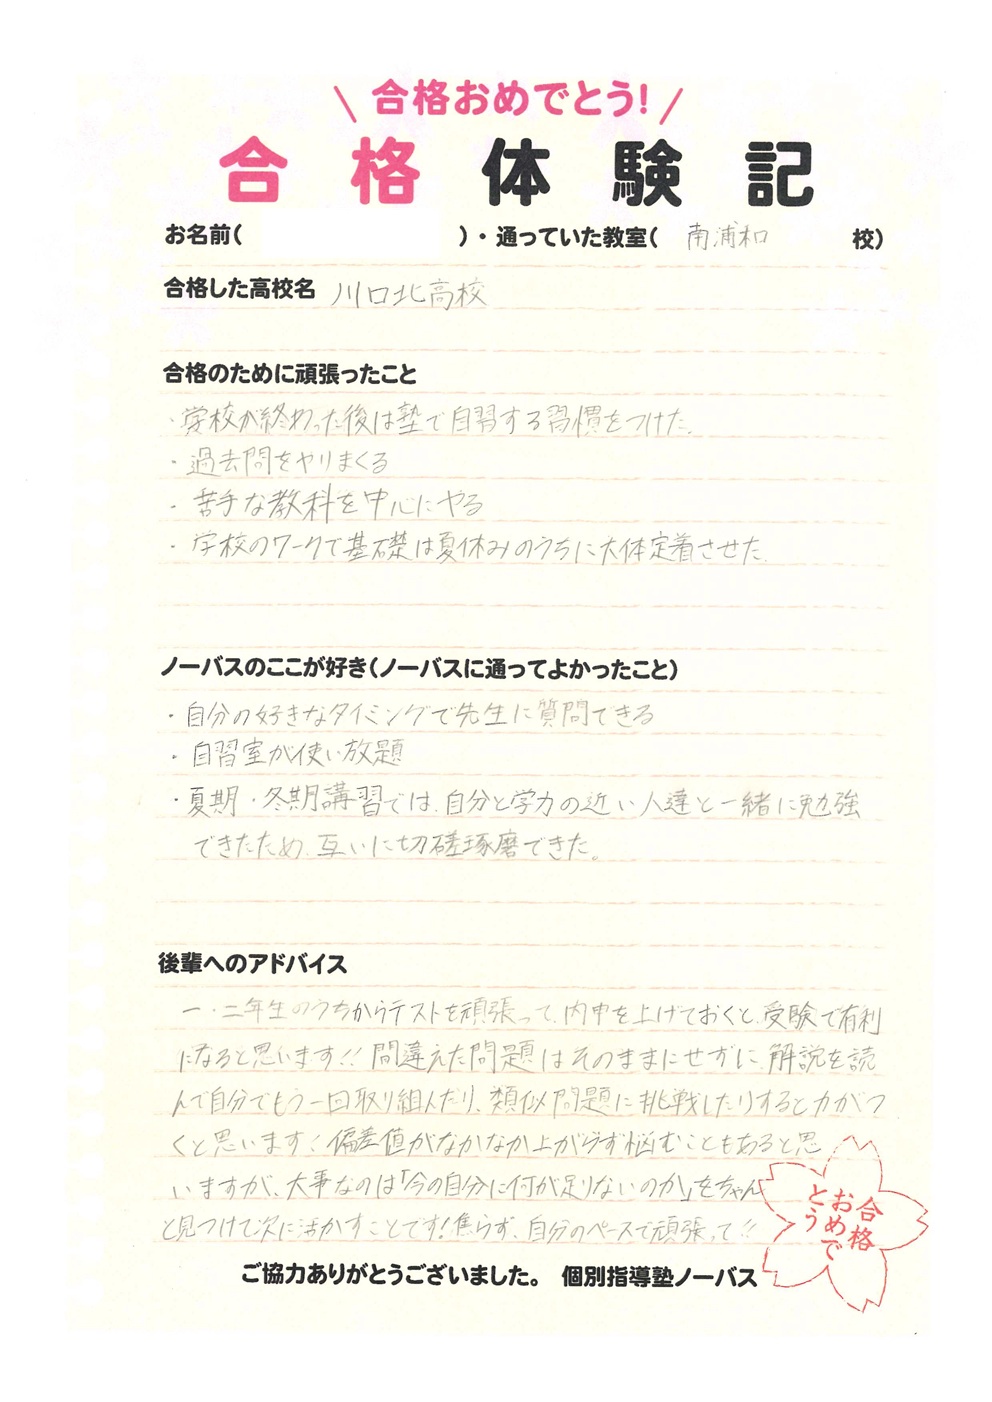 合格おめでとう!
合格体験記
お名前( )・通っていた教室( 南浦和 校)
合格した高校名 川口北高校
合格のために頑張ったこと
・学校が終わった後は塾で自習する習慣をつけた。
・過去問をヤリまくる
・苦手な教科を中心にやる
・学校のワークで基礎は夏休みのうちに大体定着させた。
ノーバスのここが好き(ノーバスに通ってよかったこと)
・自分の好きなタイミングで先生に質問できる
・自習室が使い放題
・夏期・冬期講習では、自分と学力の近い人達と一緒に勉強
できたため、互いに切磋琢磨できた。
後輩へのアドバイス
一・二年生のうちからテストを頑張って、内申を上げておくと、受験で有利
になると思います!! 間違えた問題はそのままにせずに、解説を読
んで自分でもう一回取り組んだり、類似問題に挑戦したりすると力がつ
くと思います! 偏差値がなかなか上がらず悩むこともあると思
いますが、大事なのは「今の自分に何が足りないのか」をちゃん
と見つけて次に活かすことです!焦らず、自分のペースで頑張って!!
合格
おめで
とう
ご協力ありがとうございました。 個別指導塾ノーバス